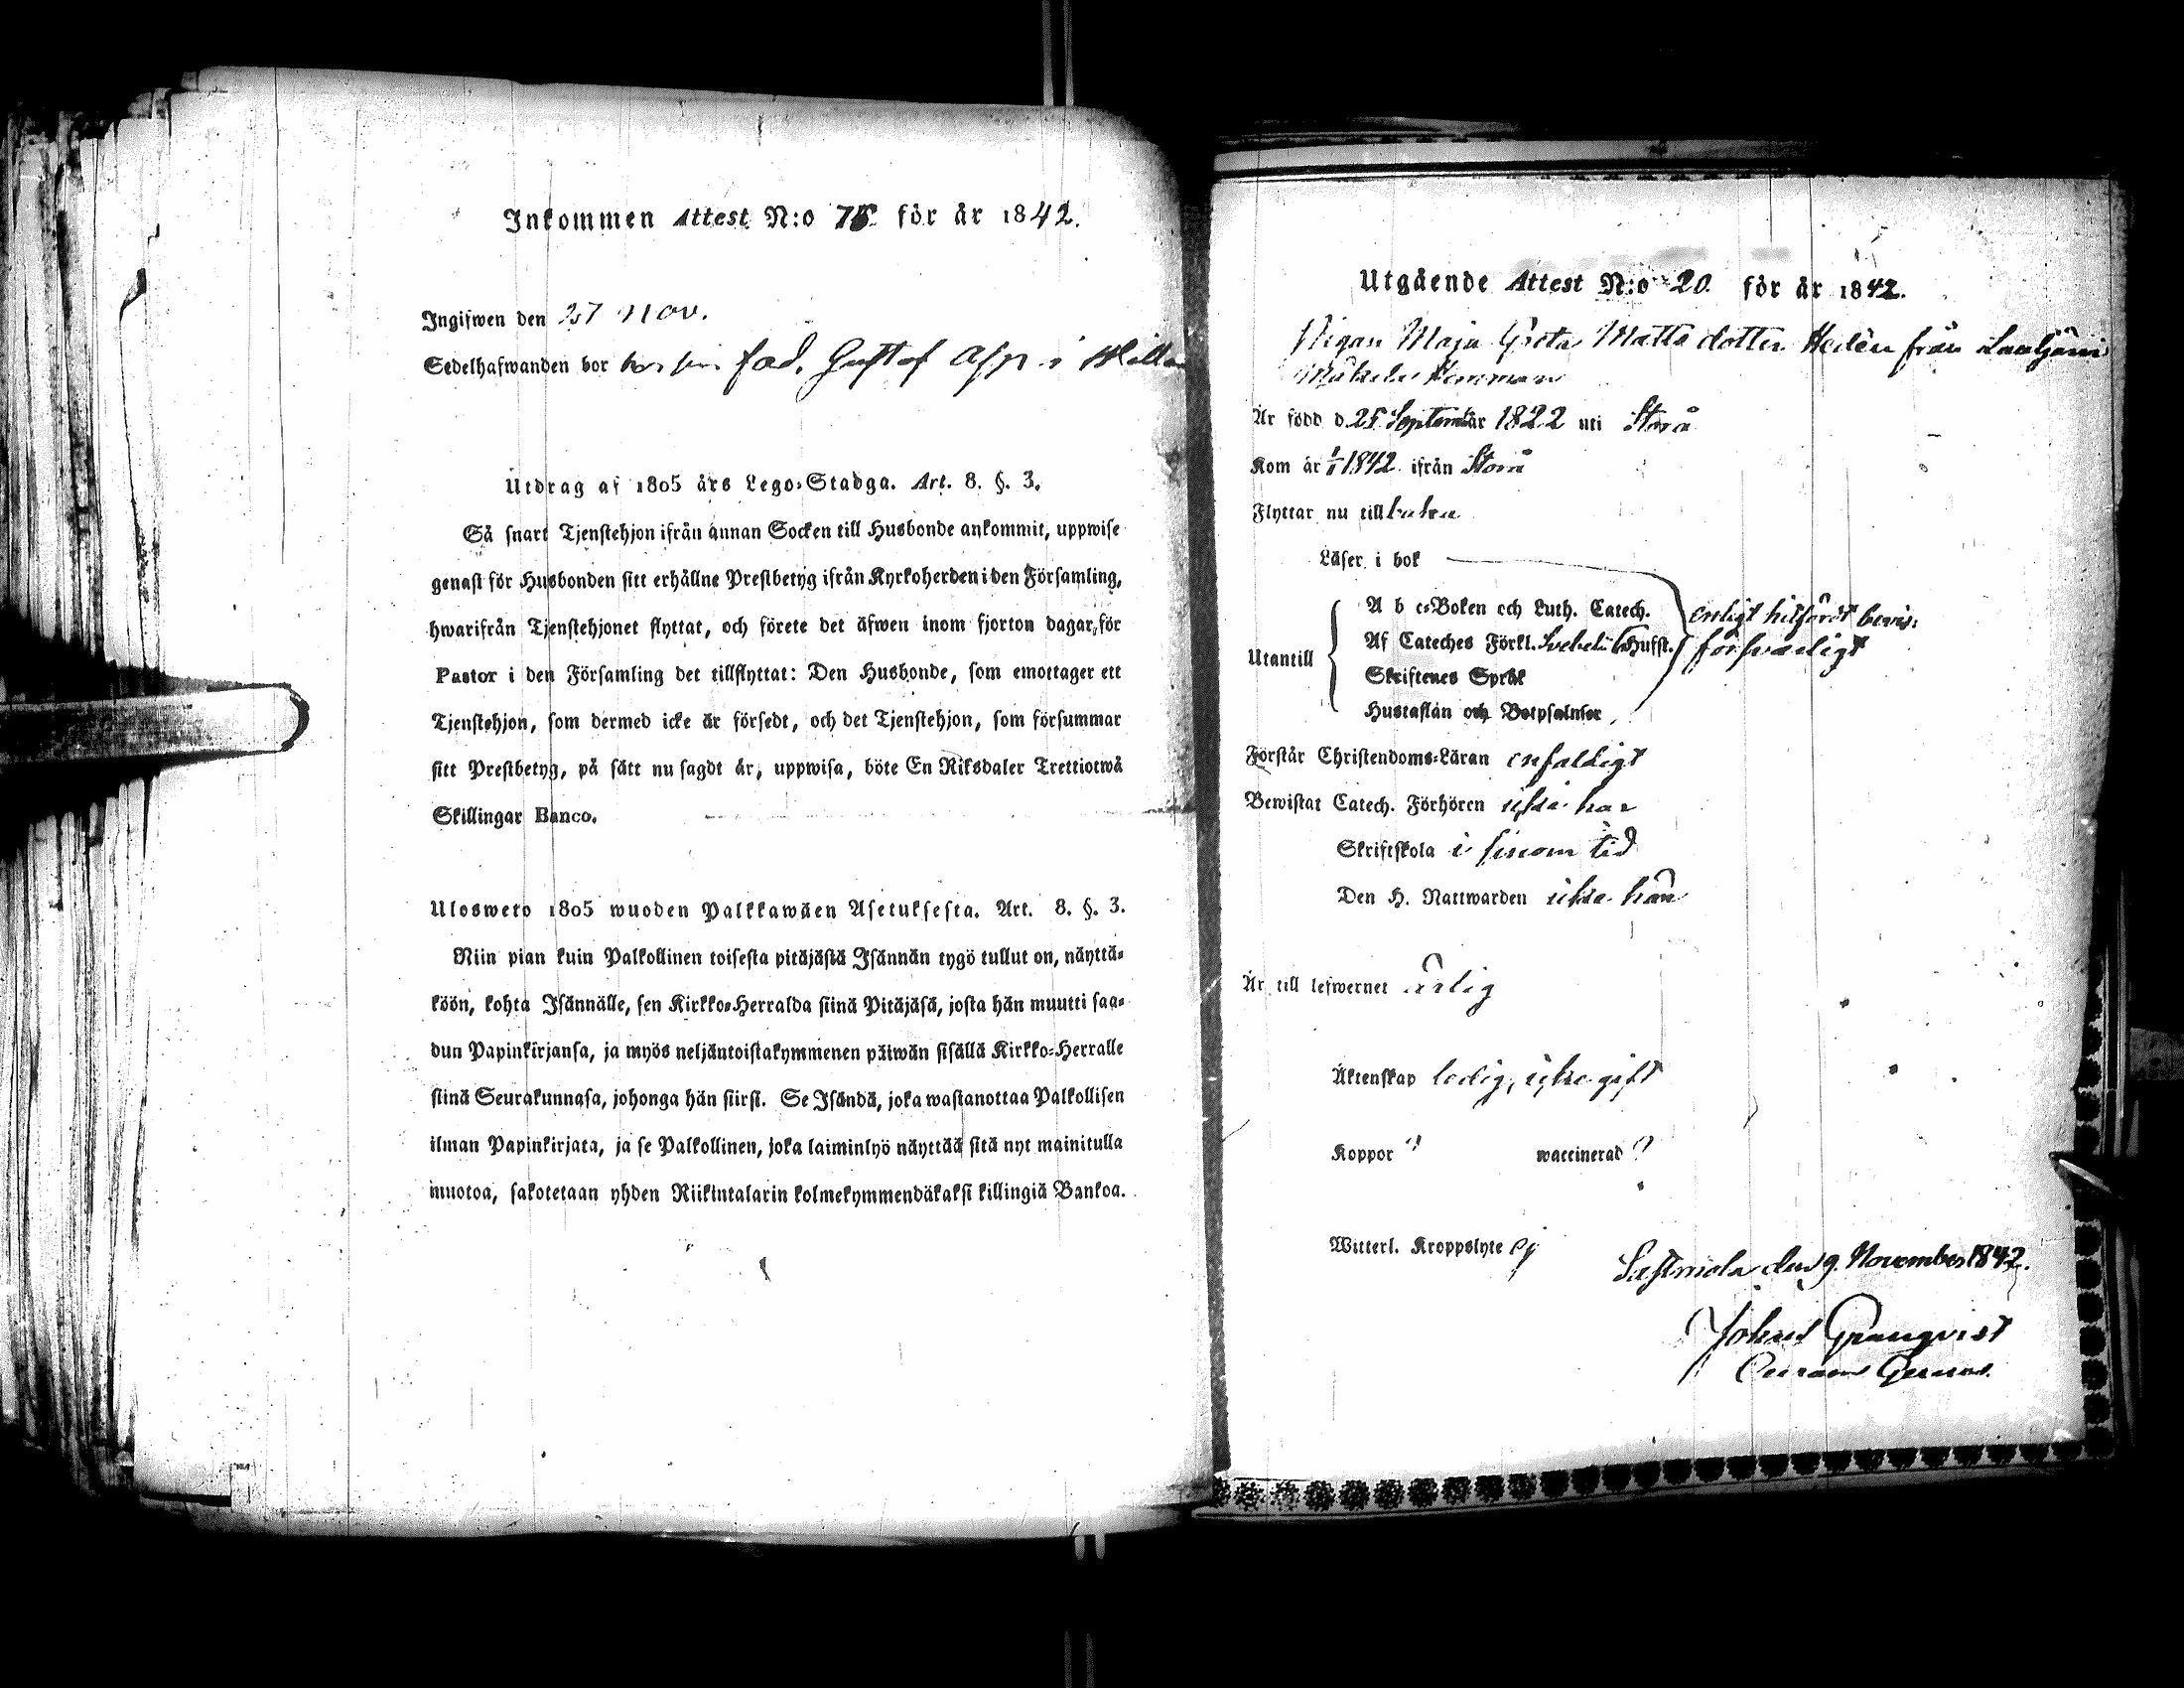 Inkommen Attest N:o 75. för år 1842.
Ingifwen den 27 Nov.
Sedelhafwanden bor hos sin fad. Gustaf Asp i
Utdrag af 1805 års Lego-Stadga. Art. 8. §. 3.
Så snart Tjenstehjon ifrån annan Socken till Husbonde ankommit, uppwise
genast för Husbonden sitt erhållne Prestbetyg ifrån Kyrkoherden i den Församling,
hwarifrån Tjenstehjonet flyttat, och förete det äfwen inom fjorton dagar för
Pastor i den Församling det tillflyttat: Den Husbonde, som emottager ett
Tjenstehjon, som dermed icke är försedt, och det Tjenstehjon, som försummar
sitt Prestbetyg, på sätt nu sagdt är, uppwisa, böte En Riksdaler Trettiotwå
Skillingar Banco.
Ulosweto 1805 wuoden Palkkawäen Asetuksesta. Art. 8. §. 3.
Niin pian kuin Palkollinen toisesta pitäjästä Isännän tygö tullut on, näyttä-
köön, kohta Isännälle, sen Kirkko-Herralda siinä Pitäjäsä, josta hän muutti saa-
dun Papinkirjansa, ja myös neljäntoistakymmenen päiwän sisällä Kirkko-Herralle
siinä Seurakunnasa, johonga hän siirsi. Se Isändä, joka wastanottaa Palkollisen
ilman Papinkirjata, ja se Palkollinen, joka laiminlyö näyttää sitä nyt mainitulla
muotoa, sakotetaan yhden Riikintalarin kolmekymmendäkaksi killingiä Bankoa.
Utgående Attest N:o 20. för år 1842.
Pigan Maja Greta Matts dotter Hedén från Laaljärvi
Hemman
Är född d. 25 September 1822 uti Storå
Kom år 1/1 1842 ifrån Storå
Flyttar nu tillbaka
Läser i bok
A b c-Boken och Luth. Catech. enligt hitfördt bevis:
Utantill Af Cateches Förkl. Svebelii 6 Hufst. försvarligt
Skriftenes Språk
Hustaflan och Botpsalmer
Förstår Christendoms-Läran enfaldigt
Bewistat Catech. Förhören icke här
Skriftskola i sinom tid
Den H. Nattwarden icke här
Är till lefwernet ärlig
Äktenskap ledig, icke gift
Koppor ? waccinerad ?
Witterl. Kroppslyte ej
Sastmola den 9. November 1842.
Johan Granqvist